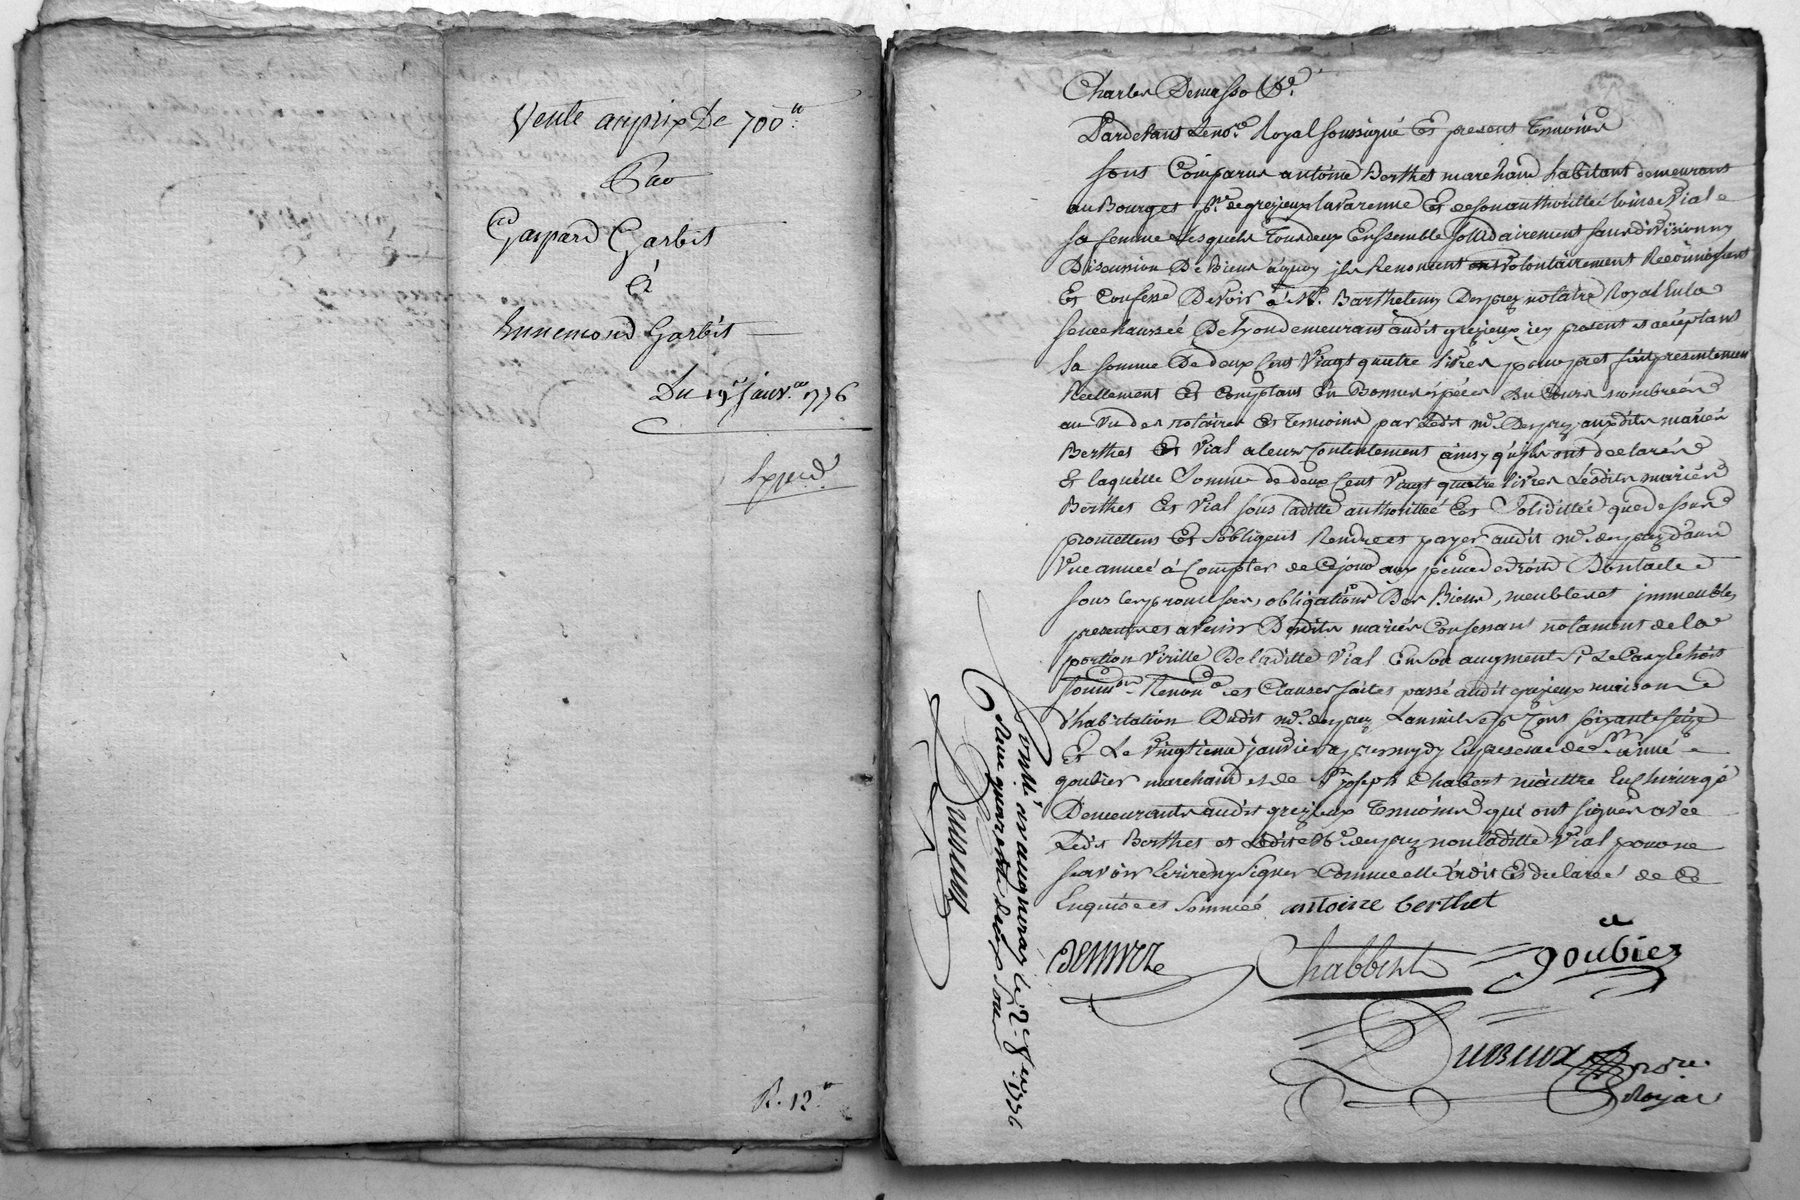 Vente au prix De 700ᵗᵗ
Par
Gaspard Garbit
à
Ennemond Garbit
Du 19ᵉ janv.ᵉʳ 1776
Exped
R. 12ᵗᵗ
Pardevant Le no.ʳᵉ Royal soussigné Et present Temoins
sont Comparus antoine Berthet marchand habitant demeurant
au Bourg et p.ˢˢᵉ de grezieux lavarenne Et de son authorittée loüise Vial
sa femme Lesquels Tous deux Enssemble sollidairement sans division ny
Discussion De Biens a quoy ils Renoncent volontairement Reconnoissent
Et Confesse Devoir à Mᵉ. Barthelemy notaire Royal En la
senechaussée De lyon demeurant audit grezieux icy present et acceptant
la somme De deux Cent Vingt quatre livres pour pret fait presentement
Reellement Et comptant En Bonnes espéces Du Cours nombreés
au Vu des notaire Et Temoins par Ledit mᵉ. auxdits mariés
Berthet Et Vial a leur Contentement ainsy qu'ils ont declarés
Et laquelle Somme de deux Cent Vingt quatre livres Lesdits mariés
Berthet Et Vial sous laditte authorittée Et Solidittée que dessus
promettent Et s'obligent Rendre et payer audit mᵉ. dans
Une année à Compter de Ce jour aux peines de droit Dont acte
sous les promesses, obligations Des Biens, meubles et immeubles
presents et a venir Desdits mariés Confessant notament de la
portion Virille De laditte Vial En son augment
soum.ᵒⁿ Renon.ᵒⁿ et Clauses faites passé audit grezieux maison
d'habitation Dudit mᵉ. L'an mil sept Cent soixante seize
Et Le Vingtieme janvier apres mydy En presence de
goubier marchand et de Sʳ joseph Chabert maittre En Chirurgie
Demeurants audit grezieux Temoins qui ont signés avec
Ledit Berthet et Ledit Mᵉ. non laditte Vial pour ne
sçavoir Ecrire ny signer Comme elle a dit Et declaré de Ce
Enquise et Sommée antoine berthet
Chabbert goubier
no.ʳᵉ
Royal
Contllé a vaugneray le 2ᵉ. 8 1776
Reçu quarente deux sous